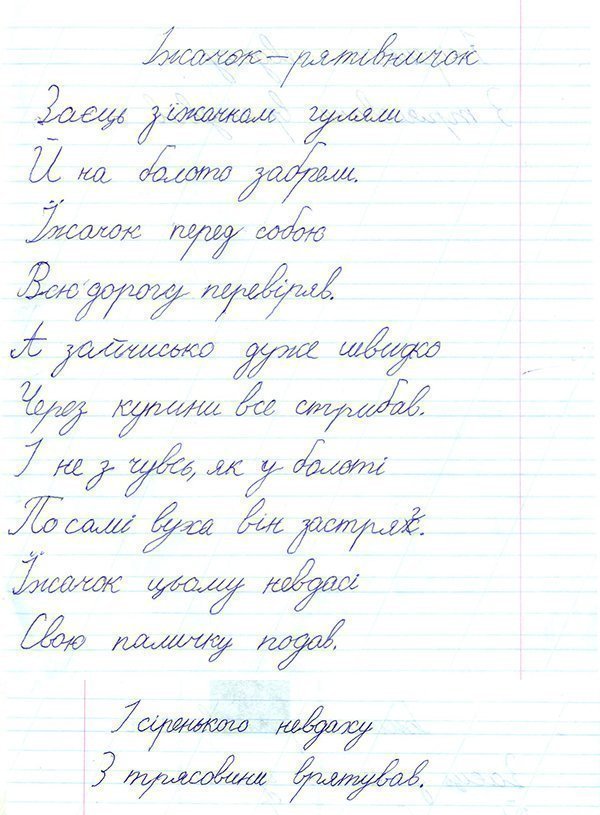 Їжачок – рятівничок
Заєць з їжачком гуляли
Й на болото забрели.
Їжачок перед собою
Всю дорогу перевіряв.
А зайчисько дуже швидко
Через купини все стрибав.
І не з чувсь, як у болоті
По самі вуха він застряг.
Їжачок цьому невдасі
Свою паличку подав.
І сіренького невдаху
З трясовини врятував.